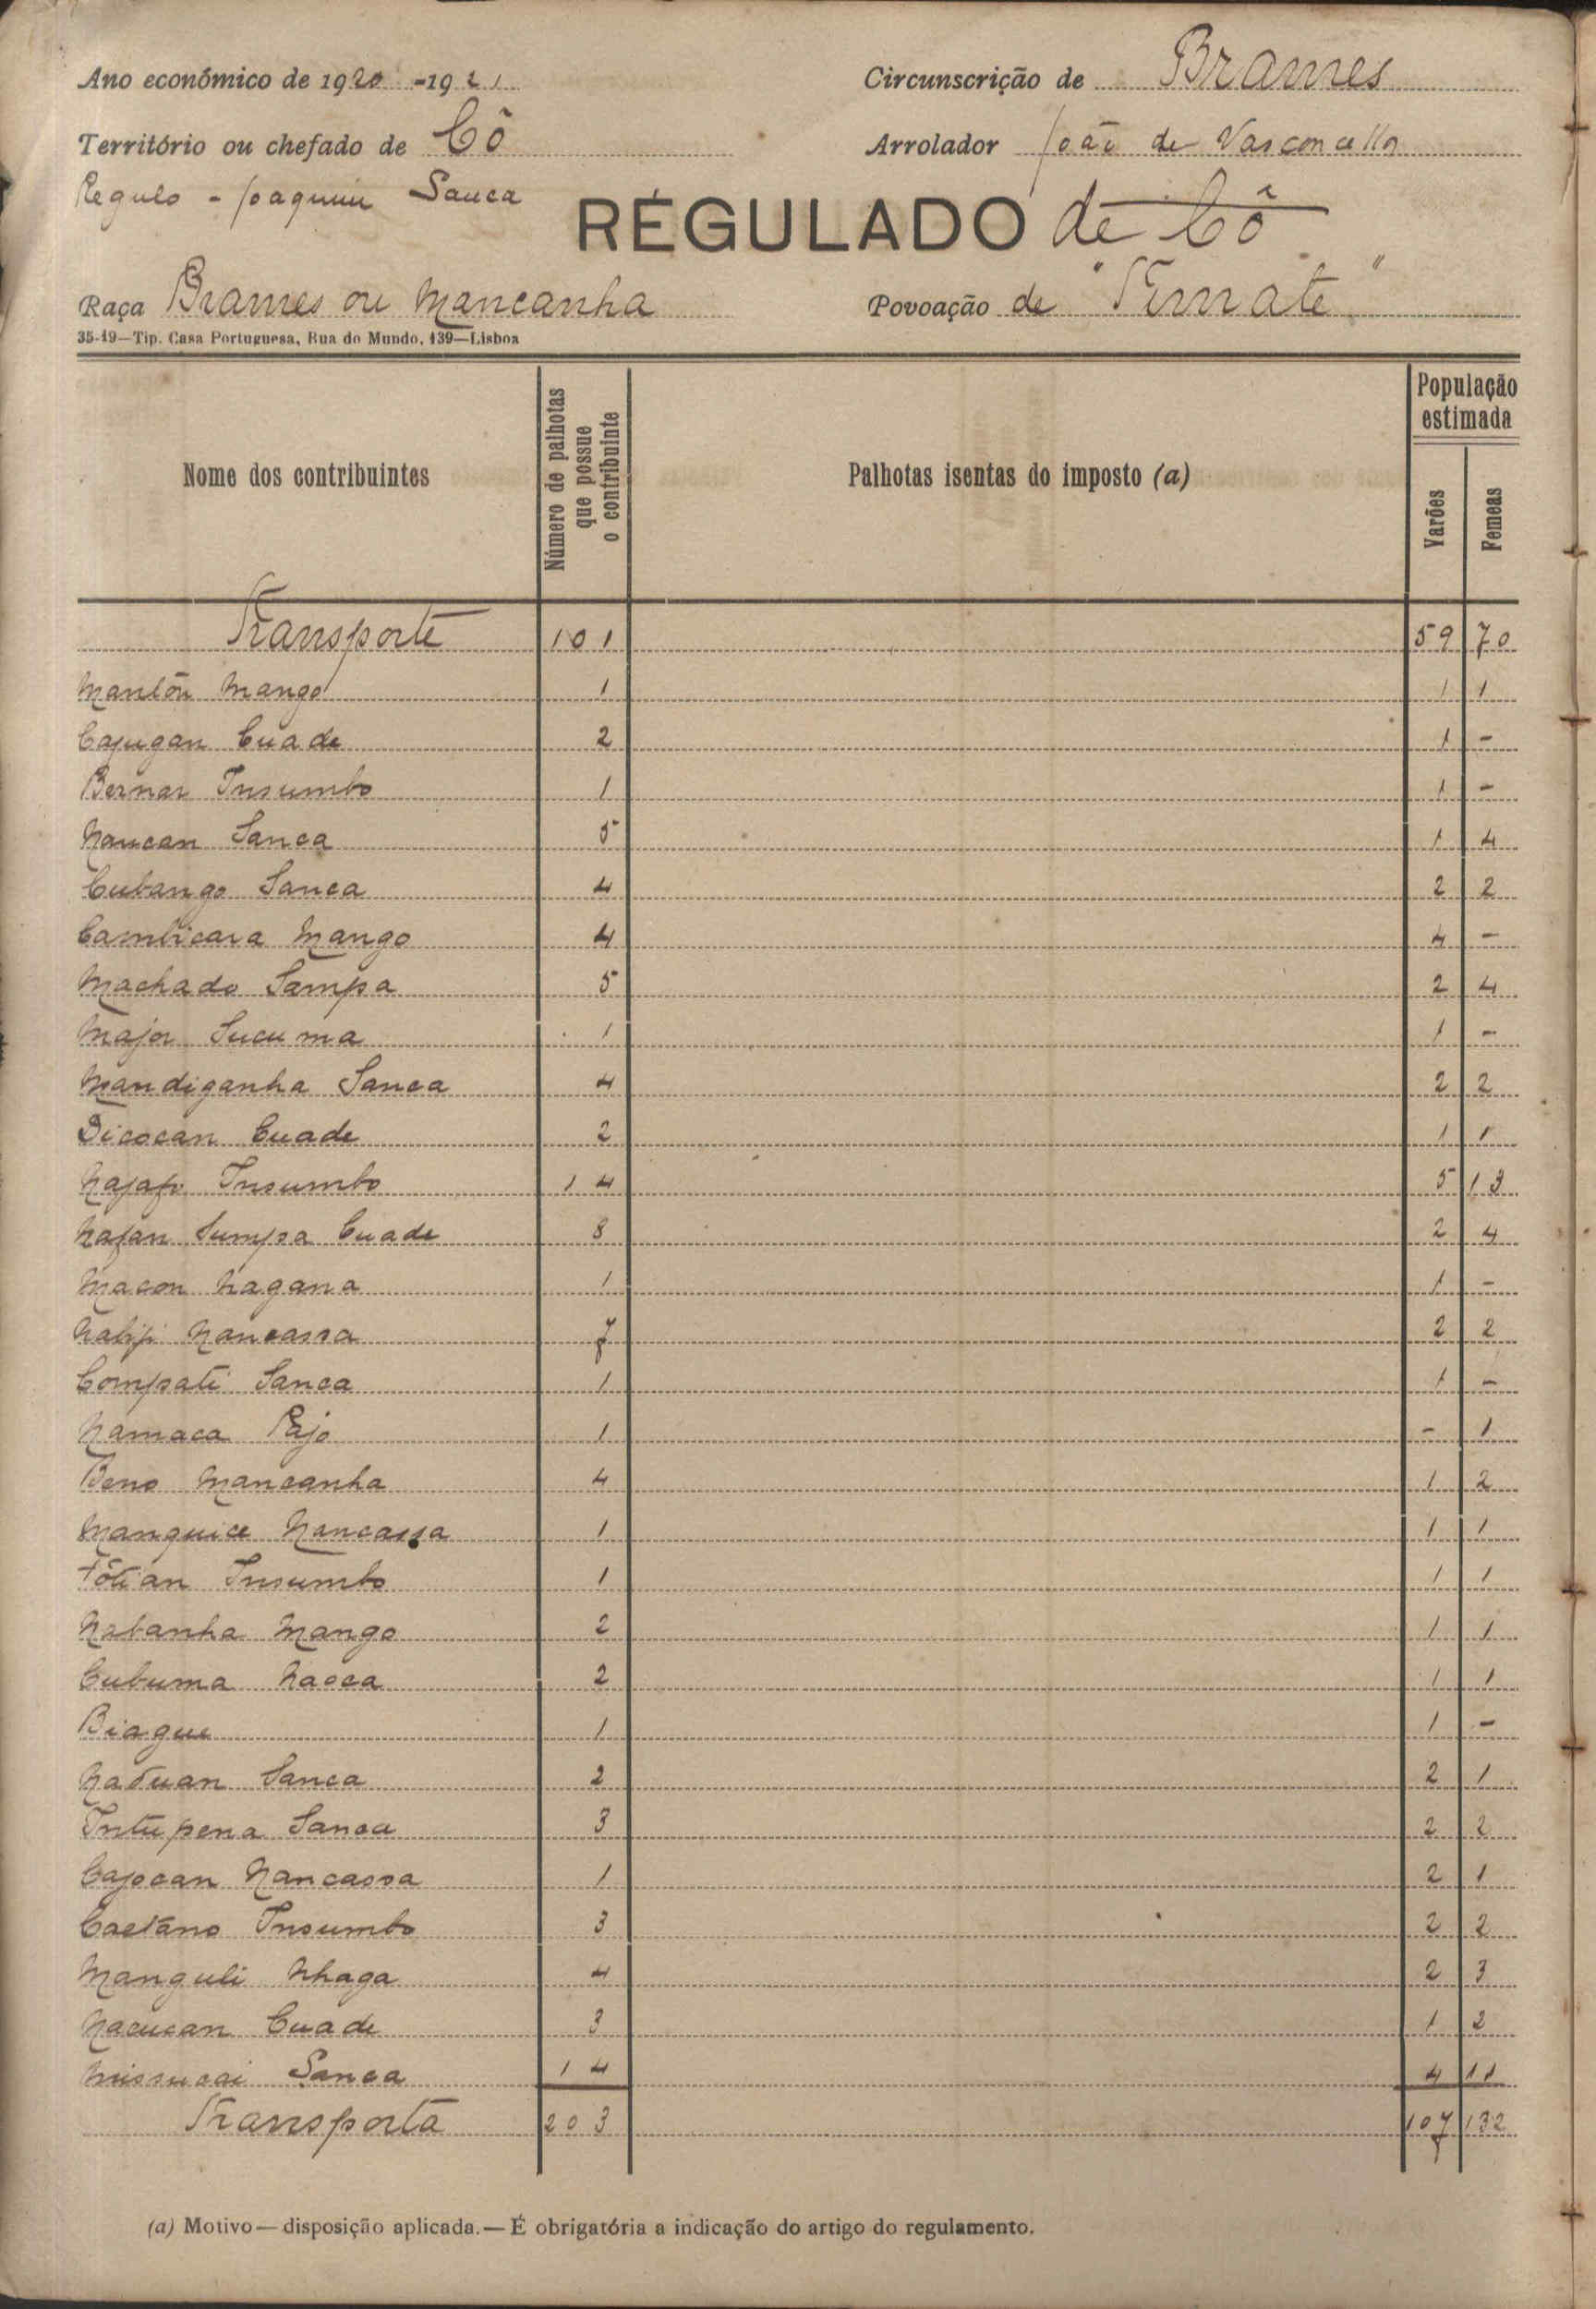 Ano económico de 1920-1921
Circunscrição de Brames
Território ou chefado de Cô
Arrolador João de Vasconcellos
Regulo - Joaquim Sanca
RÉGULADO de Cô
Raça Brames ou Mancanha
Povoação de "Timate"
35-19—Tip. Casa Portuguesa, Rua do Mundo, 139—Lisboa
Nome dos contribuintes
Número de palhotas que possue o contribuinte
Palhotas isentas do imposto (a)
População estimada
Varões
Femeas
Transporte 101 59 70
Manlõn Mango 1 1 1
Cajugan Cuade 2 1 -
Bernar Insumbo 1 1 -
Naucan Sanca 5 1 4
Cubango Sanca 4 2 2
Cambicara Mango 4 4 -
Machado Sampa 5 2 4
Major Sucuma 1 1 -
Mandiganha Sanca 4 2 2
Dicocan Cuade 2 1 1
Najafo Insumbo 14 5 13
Nafan Sumpa Cuade 8 2 4
Macon Nagana 1 1 -
Nalifi Nancassa 7 2 2
Compati Sanca 1 1 -
Namaca Pajo 1 - 1
Beno Mancanha 4 1 2
Manquice Nancassa 1 1 1
Tótian Insumbo 1 1 1
Nabanha Mango 2 1 1
Cubuma Nacca 2 1 1
Biague 1 1 -
Naduan Sanca 2 2 1
Intupena Sanca 3 2 2
Cajocan Nancassa 1 2 1
Caetano Insumbo 3 2 2
Manguli Nhaga 4 2 3
Nacucan Cuade 3 1 2
Missucai Sanca 14 4 11
Transporta 203 107 132
(a) Motivo—disposição aplicada.—É obrigatória a indicação do artigo do regulamento.